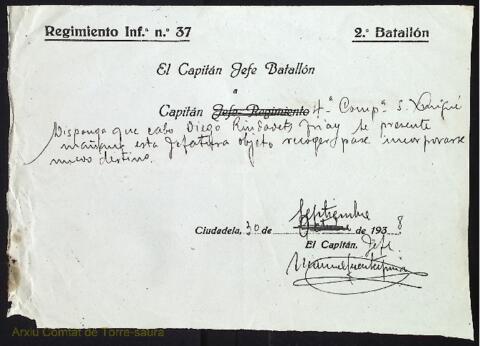 Regimiento Inf.ª n.º 37
2.º Batallón
El Capitán Jefe Batallón
a
Capitán Jefe Regimiento 4.ª Comp.ª S.
Disponga que cabo Diego se presente
mañana esta Jefatura objeto recoger pase incorporarse
nuevo destino.
Septiembre
Ciudadela, 30 de de 1938
El Capitán, Jefe
Arxiu Comtat de Torre-saura